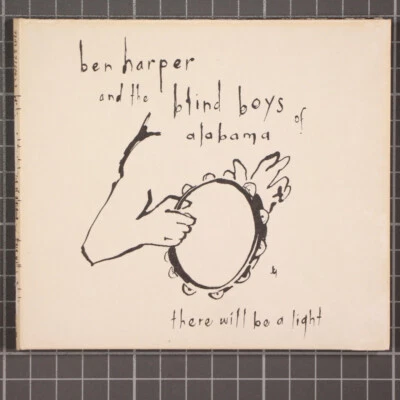 ben harper
and the blind boys of
alabama
there will be a light